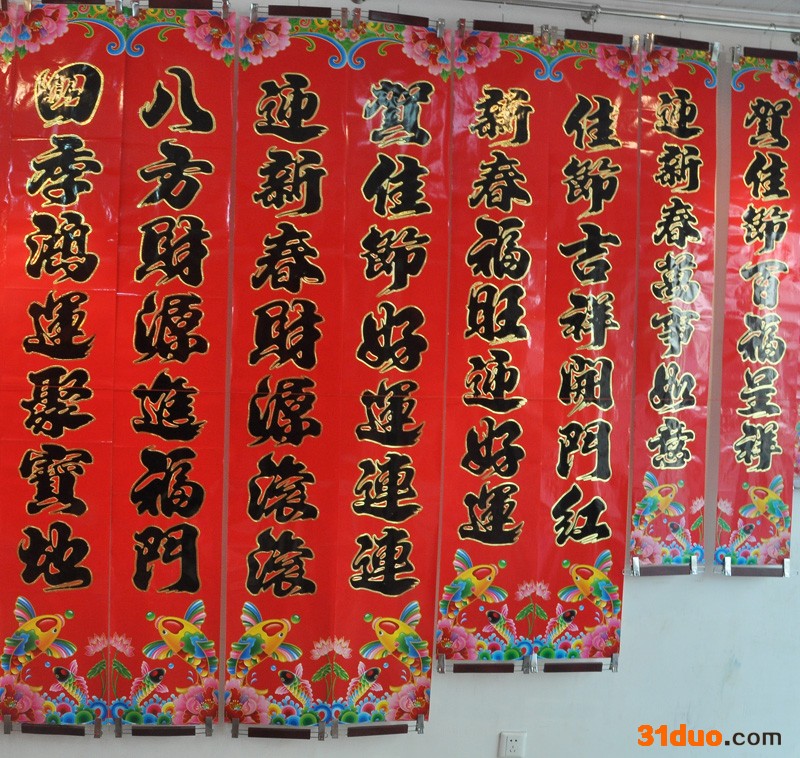 四季鴻運聚寶地
八方財源進福門
迎新春財源滾滾
賀佳節好運連連
新春福旺迎好運
佳節吉祥開門紅
迎新春萬事如意
賀佳節百福呈祥
31duo.com